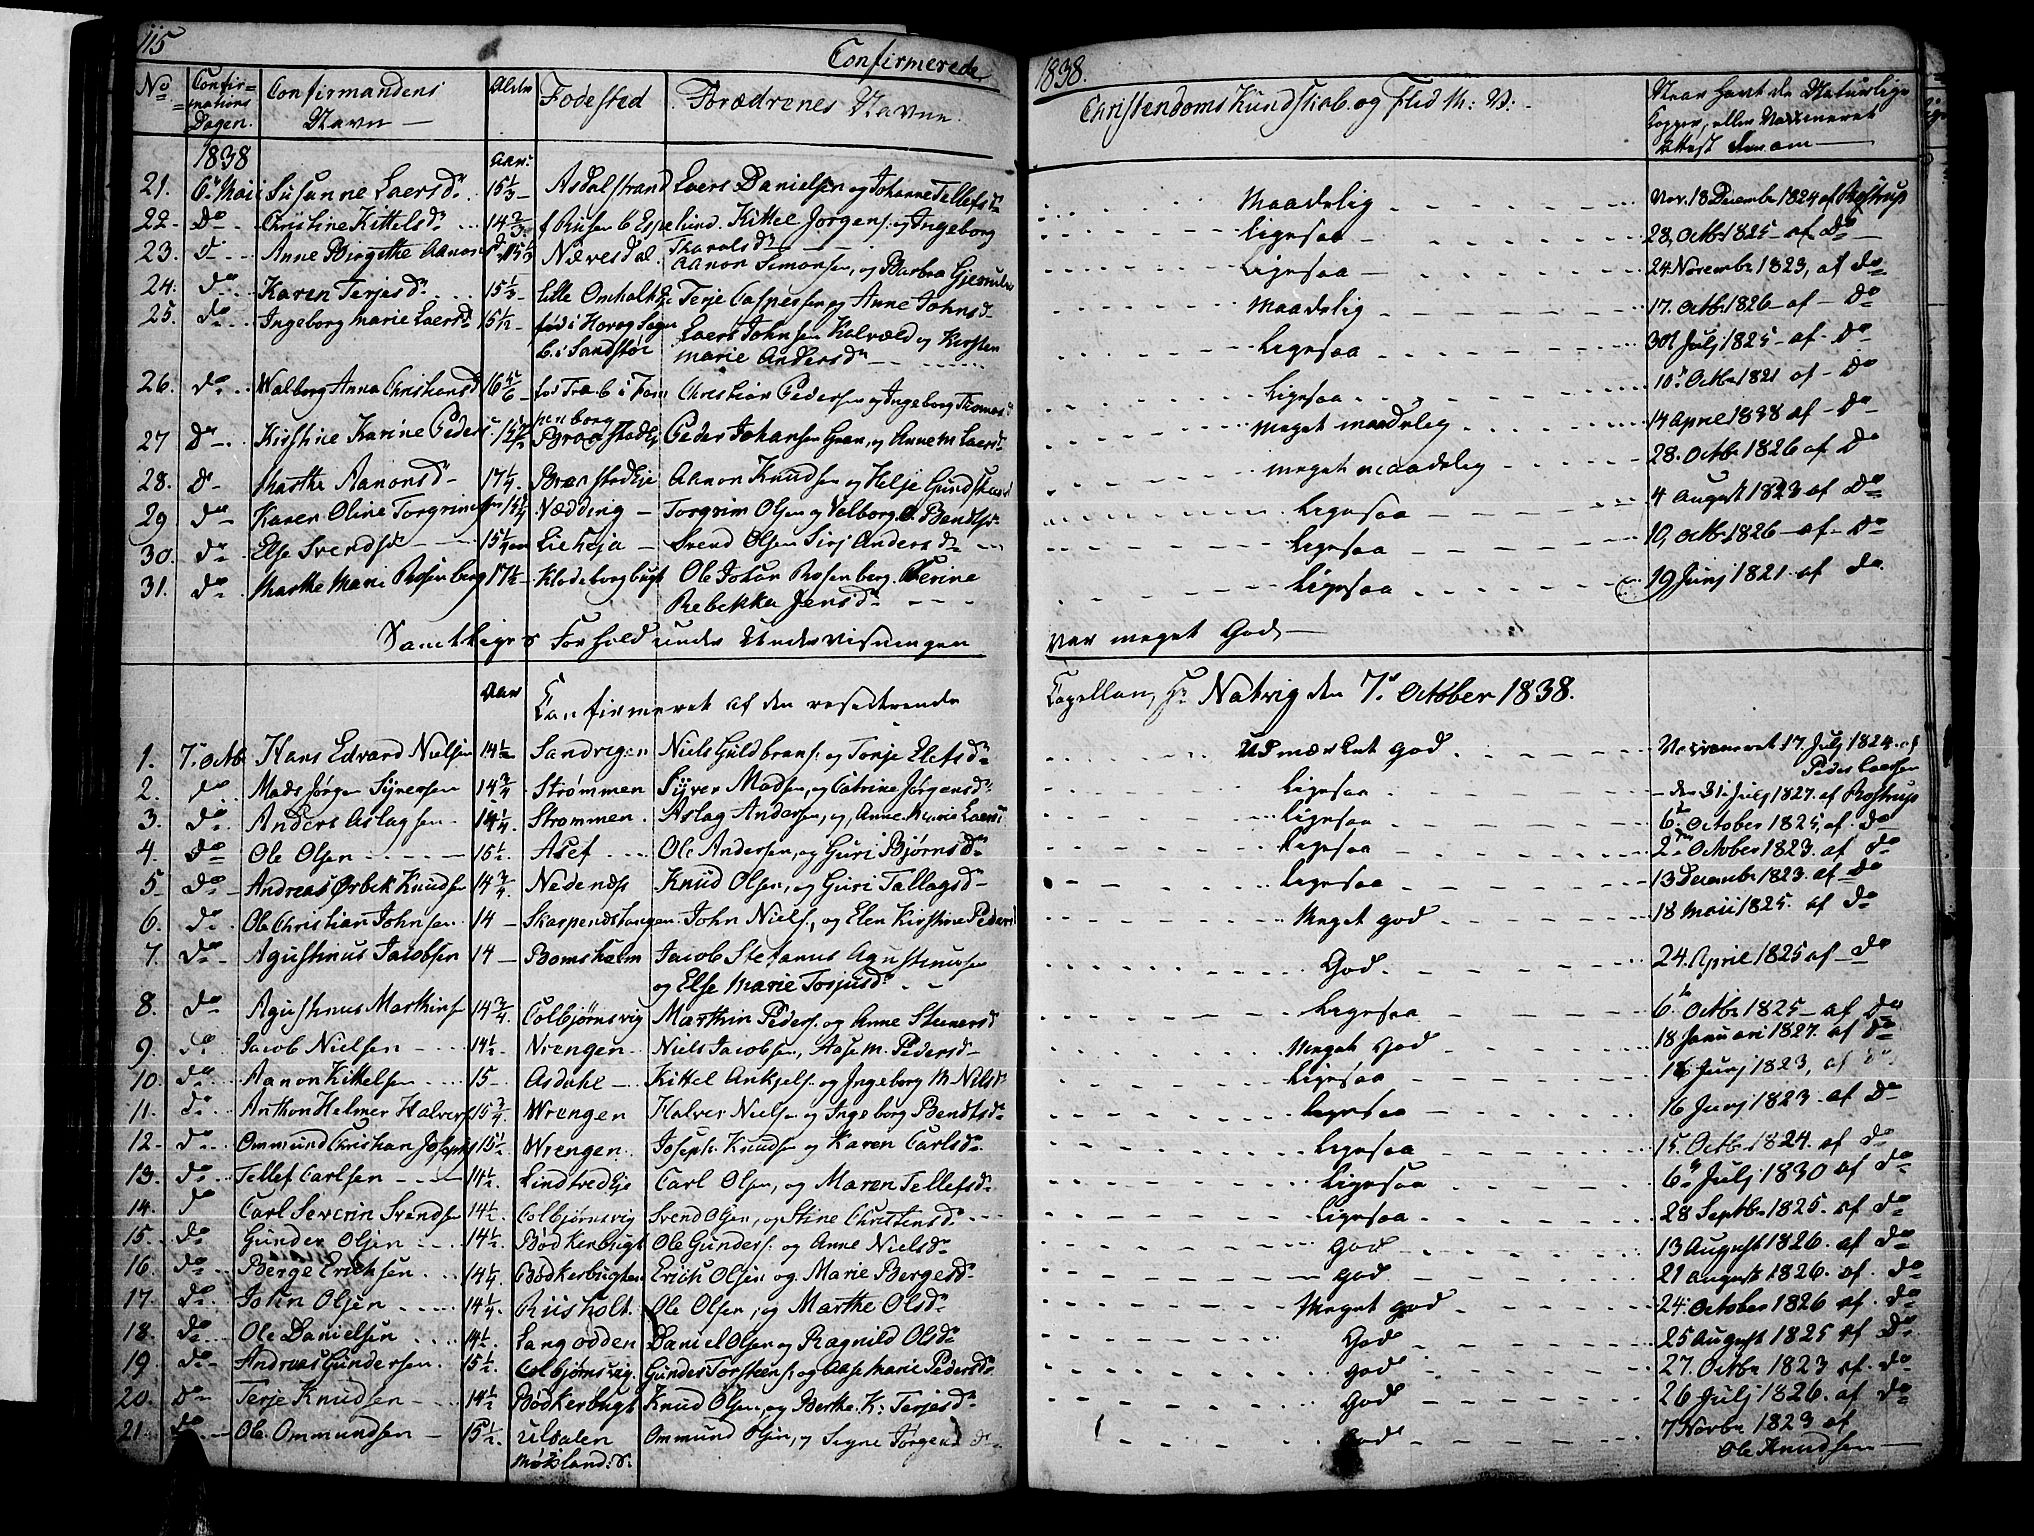 115 Confirmerede 1838.
No Confirmations Dagen. Confirmandens Navn Alder Fødested Forældrenes Navne. Christendoms Kundskab og Flid M: V: Naar havt de Naturlige Kopper, eller Vaxineret Attest derom
1838 Aar
21. 6 Maii Susanne Laersd. 15 1/3 Asdalstrand Laers Danielsen og Johanne Tellefsd. Maadelig Vax. 18 December 1824 af Rostrup
22. Do Christine Kittelsd. 14 2/3 Kittel Jørgens. og Ingeborg Ligesaa 28 Octbr 1825 af Do
23. D Anne Birgithe Aanonsd. 15 1/3 Næresdal Aanon Simonsen, og Barbra Ligesaa 24 Novembr 1823, af do
24. do Karen Terjesd. 15 1/3 Lille Omholt Terje Caspersen og Anne Johnsd. Maadelig 17. Octbr 1826 af Do
25. do Ingeborg Marie Laersd. 15 1/12 fød i Laers Johnsen Kalvæld og Kirsten Ligesaa Julj 1825 af Do
b. i Sandstøe Marie Andersd.
26. do Walborg Anna Christiansd. 16 5/6 Christian Pedersen og Ingeborg Ligesaa 10 Octbr 1821 af Do
27 Do Kirstine Karine Pedersd. Braastad Peder Johansen Gran, og Anne M Laersd. Meget maadelig 14 April 1838 af Do
28. D Marthe Aanonsd. 17 1/4 Braastad Aanon Knudsen og Helje Meget maadelig 28. Octbr 1826 af Do
29 do Karen Oline Nædding Torgrim Olsen og Valborg Bendtsd. Ligesaa 4 August 1823 af Do
30. do Else Svendsd. 15 1/4 Svend Olsen Sirj Andersd. Ligesaa 10, Octbr 1826 af Do
31. do Marthe Marie Rosenberg 17 1/2 Kloderborgbugt Ole Johan Rosenberg, Serine Ligesaa 19 Junj 1821 af do
Rebekka Jensd.
Samtliges Forhold under Undervisningen var meget God
Aar Confirmeret af den residerende Capellan, Hr Natvig den 7 October 1838.
1. 7 Octb. Hans Edvard Nielsen 14 1/2 Sandvigen Niels Guldbrans. og Tonje Elefsd. Udmærket god Vaxineret 17. Julj 1824 af
Peder Laersen
2. do Mads Jørgen Syversen 14 3/4 Strømmen Syver Madsen, og Catrine Jørgensd. Ligesaa den 31 Julj 1827. af Rostrup
3. do Anders Aslagsen 14 1/4 Strømmen. Aslag Andersen, og, Anne Marie Laersd. Ligesaa 6 October 1825, af do
4. do Ole Olsen 15 1/2 Asef Ole Andersen, og Guri Bjørnsd. Ligesaa 2 October 1823. af do
5 do Andreas Ørbek Knudsen 14 3/4 Nedenæs Knud Olsen, og Guri Tallagsd. Ligesaa 13 December 1823. af Do
6. do Ole Christian Johnsen 14 Skarpenæstangen John Niels, og Elen Kirstine Pedersd. Meget god 18 Maii 1825. af do
7. do Agustinus Jacobsen 14 Bomsholm Jacob Stefanus Agustinusen God 24. April 1825 af do
og Else Marie Tosjusd.
8. do Agustinus Marthins. 14 3/4 Colbjørnsvig Marthin Peders. og Anne Steenersd. Ligesaa 6 Octbr 1825 af do
9. do Jacob Nielsen 14 1/2 Nrengen Niels Jacobsen, Aase M. Pedersd. Meget God 18 Januari 1827. af do
10. do Aanon Kittelsen 15 Asdahl Kittel Ankjels. og Ingeborg M. Nilsd. Ligesaa 18 Junj 1823, af do
11. do Anthon Helmer Halvers. 15 3/4 Wrengen Halver Nielsen og Ingeborg Bendtsd. Ligesaa 16 Junj 1823. af Do
12. do Ommund Christian Josephs. 15 1/2 Wrengen. Joseph Knudsen og Karen Carlsd. Ligesaa 15. Octb. 1824. af do
13. do Tellef Carlsen 14 1/2 Lindtved Carl Olsen, og Maren Tellefsd. Ligesaa 6 Julj 1830 af do
14. do Carl Severin Svendsen 14 1/2 Colbjørnsvig Svend Olsen, og Stine Christensd. Ligesaa 28 Septbr 1825. af do
15. do Gunder Olsen 14 1/2 Bødkerbugt Ole Gunders. og Anne Nielsd. God 13 August 1826. af do
16. do Berge Ericksen 14 1/4 Bødkerbugten Erich Olsen og Marie Bergesd. God 21 August 1826. af do
17. do John Olsen 14 1/4 Riisholt. Ole Olsen, og Marthe Olsd. Meget god 24. October 1826 af do
18. do Ole Danielsen 14 1/2 Langodden Daniel Olsen og Ragnild Olsd. God 25 August 1825 af Do
19. do Andreas Gundersen 15 1/2 Colbjørnsvig. Gunder Torsteens. og Aase Marie Pedersd. God 27. Octbr 1823 af. do
20. Do Terje Knudsen 14 1/2 Bødkerbugt Knud Olsen, og Berthe K: Terjesd. God 26 Julj 1826. af do
21. do Ole Ommundsen 15 1/2 Ulsalen Ommund Olsen, og Signe Jørgensd. God 7 Novbr 1823 af
Ole Knudsen